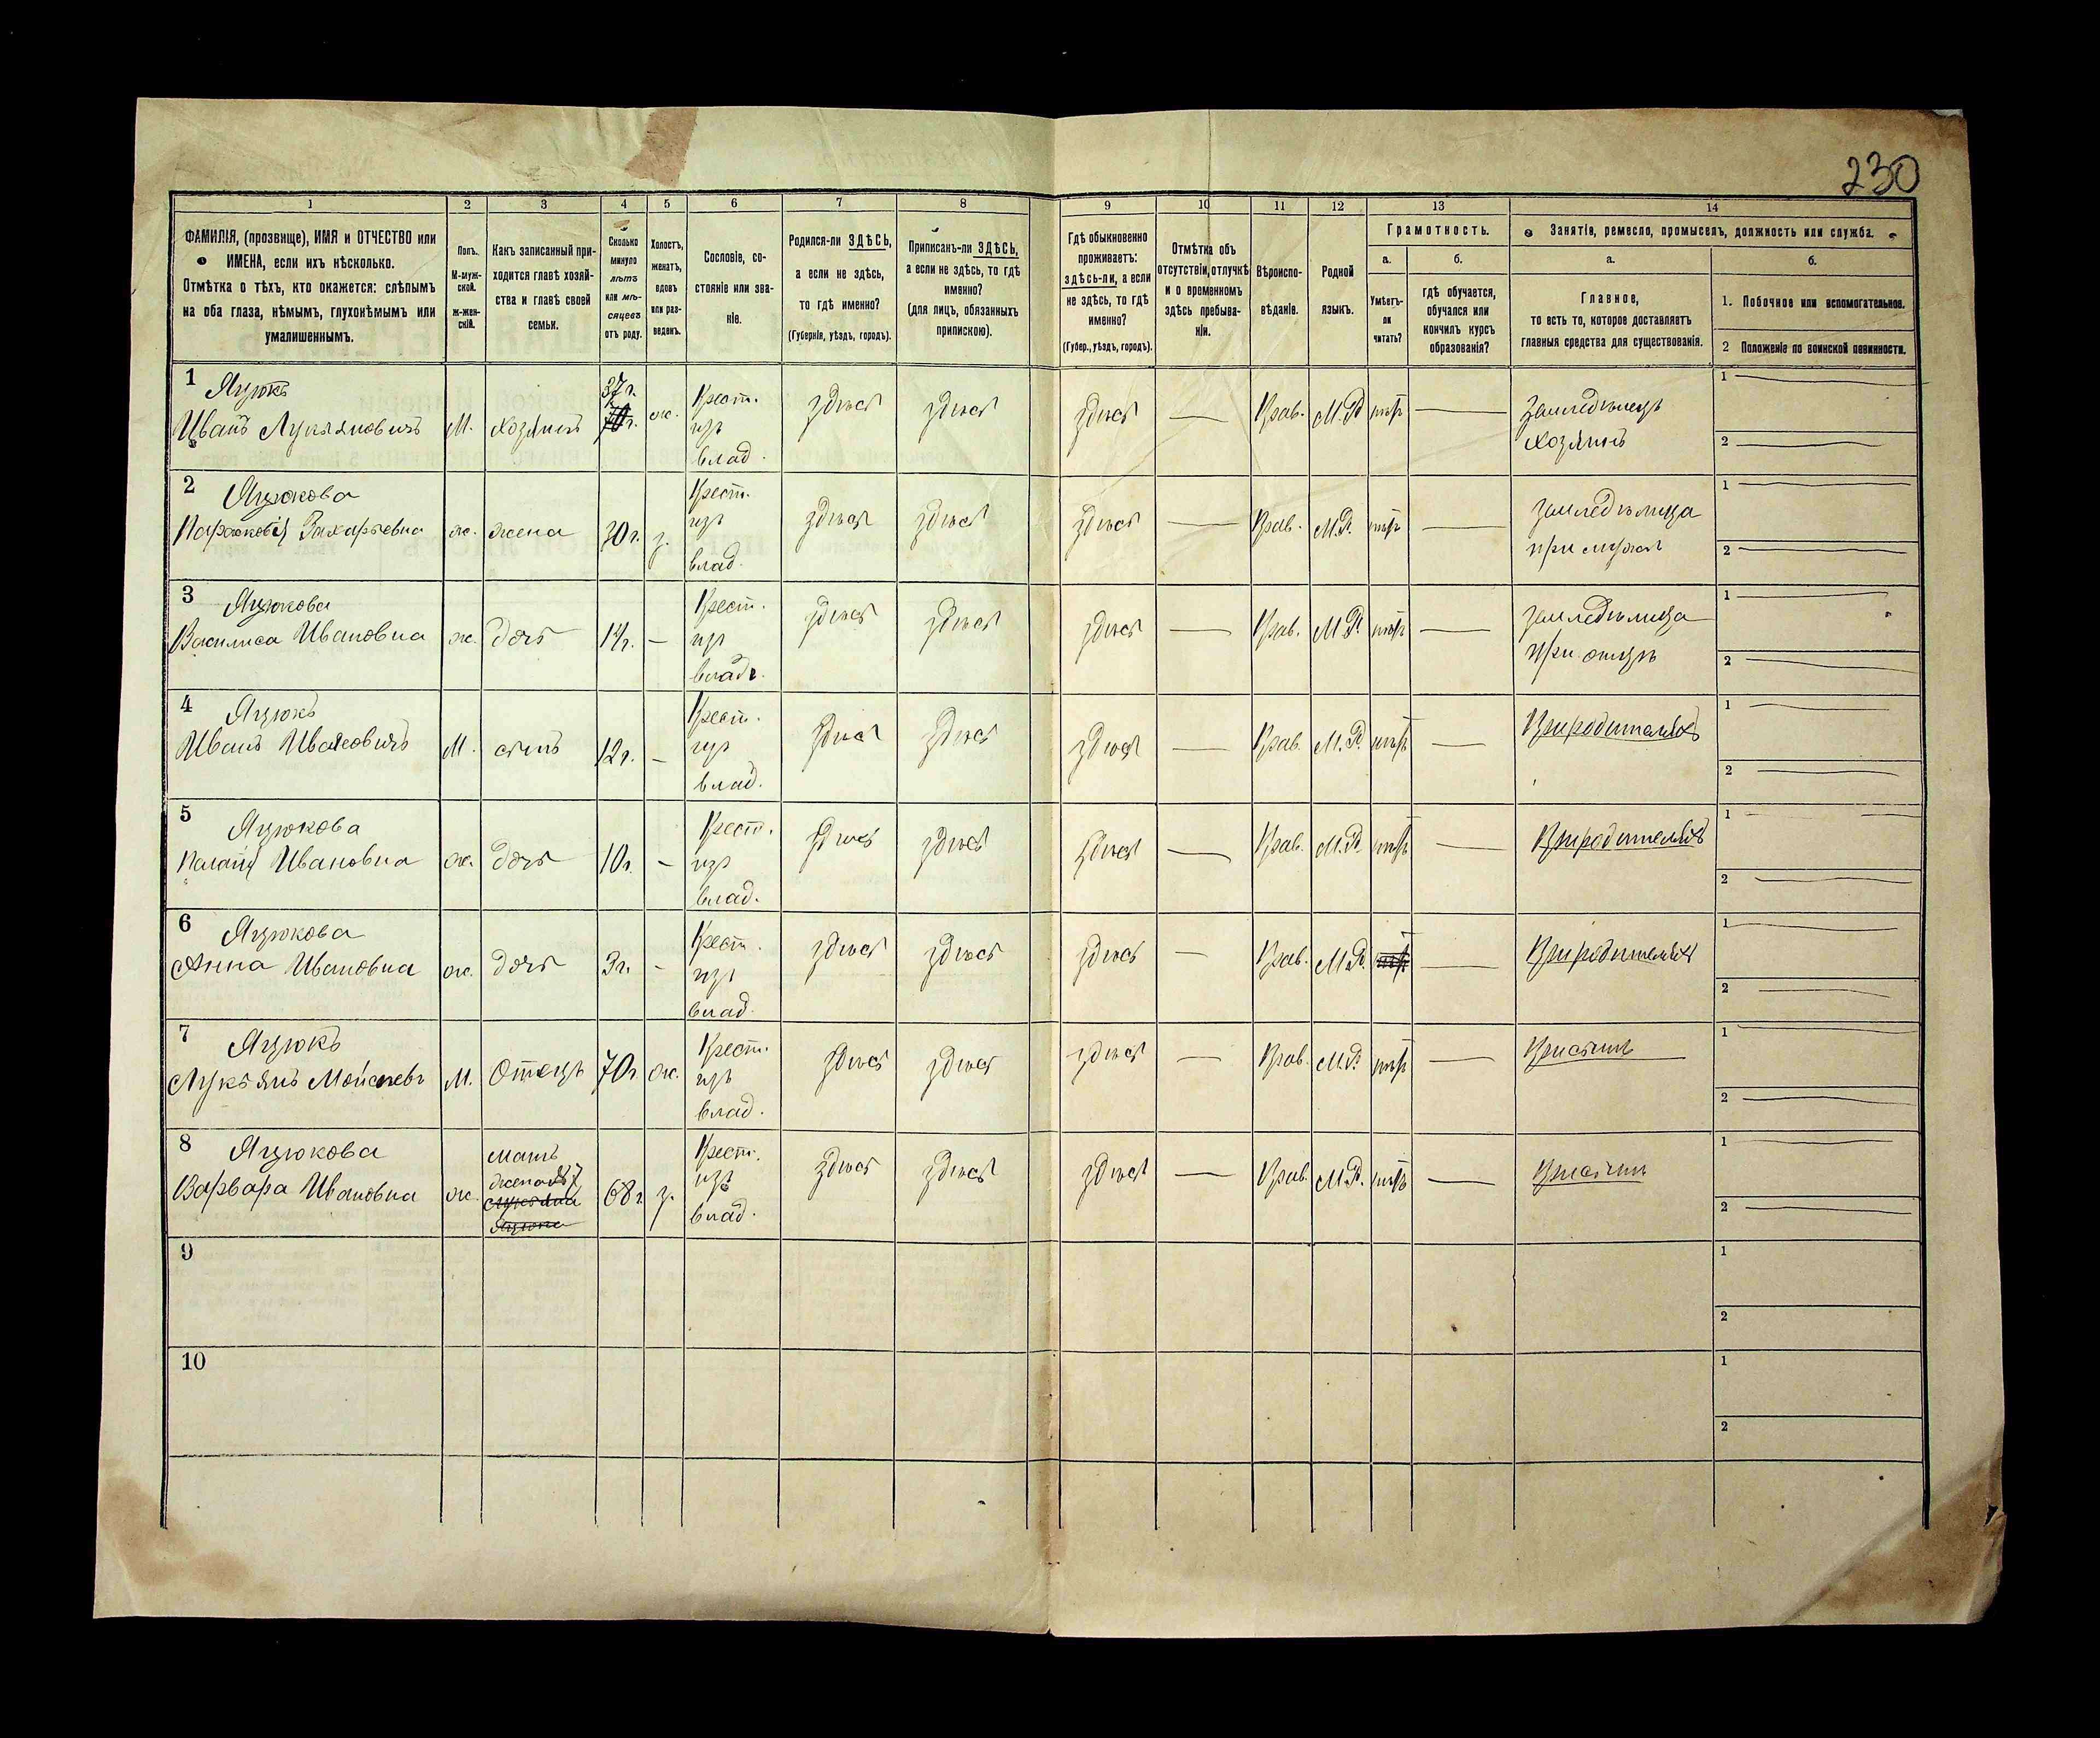 230
1 2 3 4 5 6 7 8 9 10 11 12 13 14
ФАМИЛІЯ, (прозвище), ИМЯ и ОТЧЕСТВО или
ИМЕНА, если ихъ нѣсколько.
Отмѣтка о тѣхъ, кто окажется: слѣпымъ
на оба глаза, нѣмымъ, глухонѣмымъ или
умалишеннымъ.
Полъ.
М-муж-
ской.
Ж-жен-
скій.
Какъ записанный при-
ходится главѣ хозяй-
ства и главѣ своей
семьи.
Сколько
минуло
лѣтъ
или мѣ-
сяцевъ
отъ роду.
Холостъ,
женатъ,
вдовъ
или раз-
веденъ.
Сословіе, со-
стояніе или зва-
ніе.
Родился-ли ЗДѢСЬ,
а если не здѣсь,
то гдѣ именно?
(Губернія, уѣздъ, городъ).
Приписанъ-ли ЗДѢСЬ,
а если не здѣсь, то гдѣ
именно?
(для лицъ, обязанныхъ
припискою).
Гдѣ обыкновенно
проживаетъ:
здѣсь-ли, а если
не здѣсь, то гдѣ
именно?
(Губер., уѣздъ, городъ).
Отмѣтка объ
отсутствіи, отлучкѣ
и о временномъ
здѣсь пребыва-
ніи.
Вѣроиспо-
вѣданіе.
Родной
языкъ.
Грамотность.
а.
Умѣетъ-
ли
читать?
б.
гдѣ обучается,
обучался или
кончилъ курсъ
образованія?
Занятія, ремесло, промыселъ, должность или служба.
а.
Главное,
то есть то, которое доставляетъ
главныя средства для существованія.
б.
1. Побочное или вспомогательное.
2 Положеніе по воинской повинности.
1 Яцюкъ
Иванъ Лукьяновичъ М. хозяинъ 37 г. ж. Крест. изъ влад. здѣсь здѣсь здѣсь — Прав. М.Р. нѣтъ — Земледѣлецъ хозяинъ 1 2
2 Яцюкова
Захарьевна ж. жена 30 г. з. Крест. изъ влад. здѣсь здѣсь здѣсь — Прав. М.Р. нѣтъ — Земледѣлица при мужѣ 1 2
3 Яцюкова
Василиса Ивановна ж. дочь 14 г. — Крест. изъ влад. здѣсь здѣсь здѣсь — Прав. М.Р. нѣтъ — Земледѣлица при отцѣ 1 2
4 Яцюкъ
Иванъ Ивановичъ М. сынъ 12 г. — Крест. изъ влад. здѣсь здѣсь здѣсь — Прав. М.Р. нѣтъ — При родителяхъ 1 2
5 Яцюкова
Ивановна ж. дочь 10 г. — Крест. изъ влад. здѣсь здѣсь здѣсь — Прав. М.Р. нѣтъ — При родителяхъ 1 2
6 Яцюкова
Анна Ивановна ж. дочь 3 г. — Крест. изъ влад. здѣсь здѣсь здѣсь — Прав. М.Р. — При родителяхъ 1 2
7 Яцюкъ
Лукьянъ М. Отецъ 70 г. ж. Крест. изъ влад. здѣсь здѣсь здѣсь — Прав. М.Р. нѣтъ — При сынѣ 1 2
8 Яцюкова
Варвара Ивановна ж. мать жена №7 68 г. з. Крест. изъ влад. здѣсь здѣсь здѣсь — Прав. М.Р. нѣтъ — При сынѣ 1 2
9 1 2
10 1 2